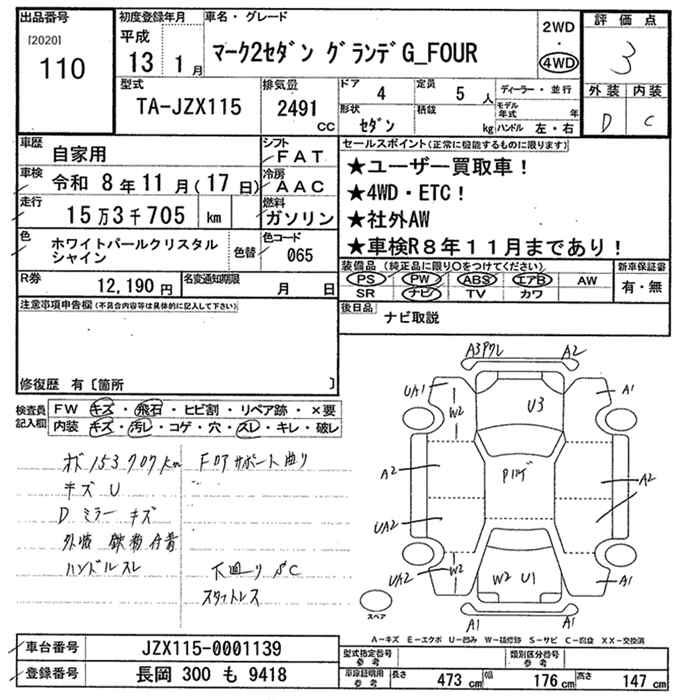 出品番号
[2020]
110
初度登録年月
平成
13 1月
車名・グレード
マーク2セダン グランデG_FOUR
2WD
4WD
評価点
3
外装 内装
D C
型式
TA-JZX115
排気量
2491
CC
ドア 4
定員 5 人
ディーラー・並行
形状 セダン
積載 kg
モデル年式 年
ハンドル 左・右
車歴 自家用
シフト FAT
車検 令和 8年11月(17日)
冷房 AAC
走行 15万3千705 km
燃料 ガソリン
色 ホワイトパールクリスタルシャイン
色替
色コード 065
R券 12,190円
名変通知期限 月 日
セールスポイント(正常に機能するものに限ります)
★ユーザー買取車!
★4WD・ETC!
★社外AW
★車検R8年11月まであり!
装備品(純正品に限り○をつけてください)
新車保証書
PS PW ABS エアB AW
SR ナビ TV カワ
有・無
後日品
ナビ取説
注意事項申告欄(不具合内容等は具体的に記入して下さい)
修復歴 有[箇所 ]
検査員記入欄
FW キズ・飛石・ヒビ割・リペア跡・×要
内装 キズ・汚レ・コゲ・穴・スレ・キレ・破レ
153707km
Fコアサポート曲り
キズ U
D ミラー キズ
外装 鉄粉付着
ハンドルスレ
下廻り SC
スタットレス
A2
UA1
W2
U3
A1
A2
A2
UA2
UA2
W2
W2 U1
A1
A1
A1
スペア
A-キズ E-エクボ U-凹み W-補修跡 S-サビ C-腐食 XX-交換済
車台番号 JZX115-0001139
登録番号 長岡 300 も 9418
型式指定番号 参考
類別区分番号 参考
車庫証明用 参考
長さ 473 cm
幅 176 cm
高さ 147 cm